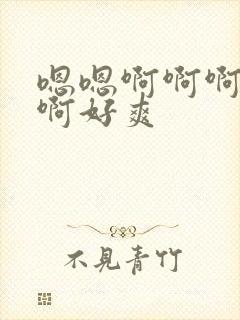 嗯嗯啊啊啊
啊好爽
不见青竹